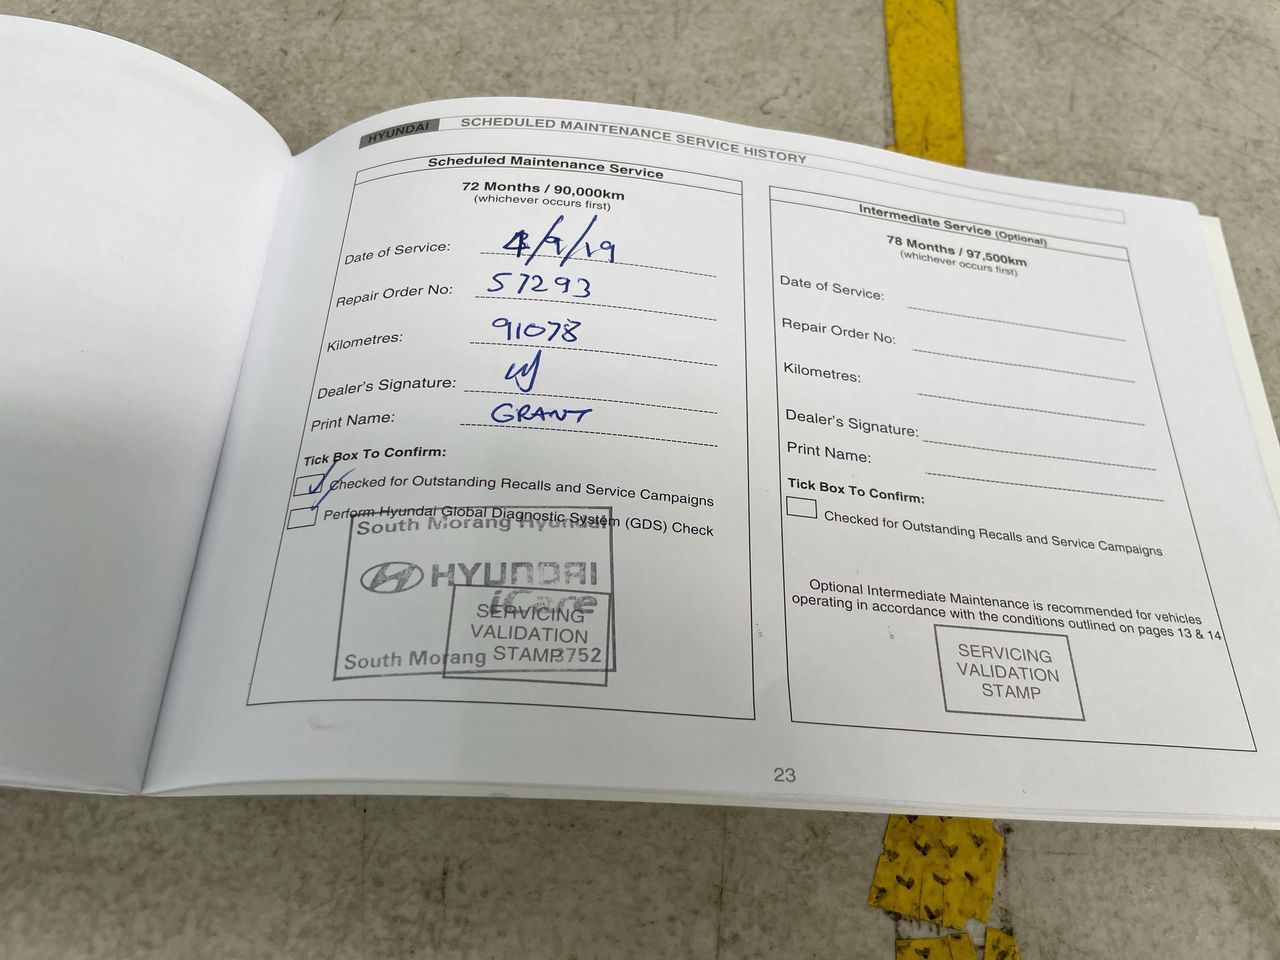 HYUNDAI SCHEDULED MAINTENANCE SERVICE HISTORY
Scheduled Maintenance Service
72 Months / 90,000km
(whichever occurs first)
Date of Service: 4/9/19
Repair Order No: 57293
Kilometres: 91078
Dealer's Signature:
Print Name: GRANT
Tick Box To Confirm:
Checked for Outstanding Recalls and Service Campaigns
Perform Hyundai Global Diagnostic System (GDS) Check
South Morang Hyundai
HYUNDAI
iCare
SERVICING
VALIDATION
STAMP
South Morang 3752
Intermediate Service (Optional)
78 Months / 97,500km
(whichever occurs first)
Date of Service:
Repair Order No:
Kilometres:
Dealer's Signature:
Print Name:
Tick Box To Confirm:
Checked for Outstanding Recalls and Service Campaigns
Optional Intermediate Maintenance is recommended for vehicles
operating in accordance with the conditions outlined on pages 13 & 14
SERVICING
VALIDATION
STAMP
23